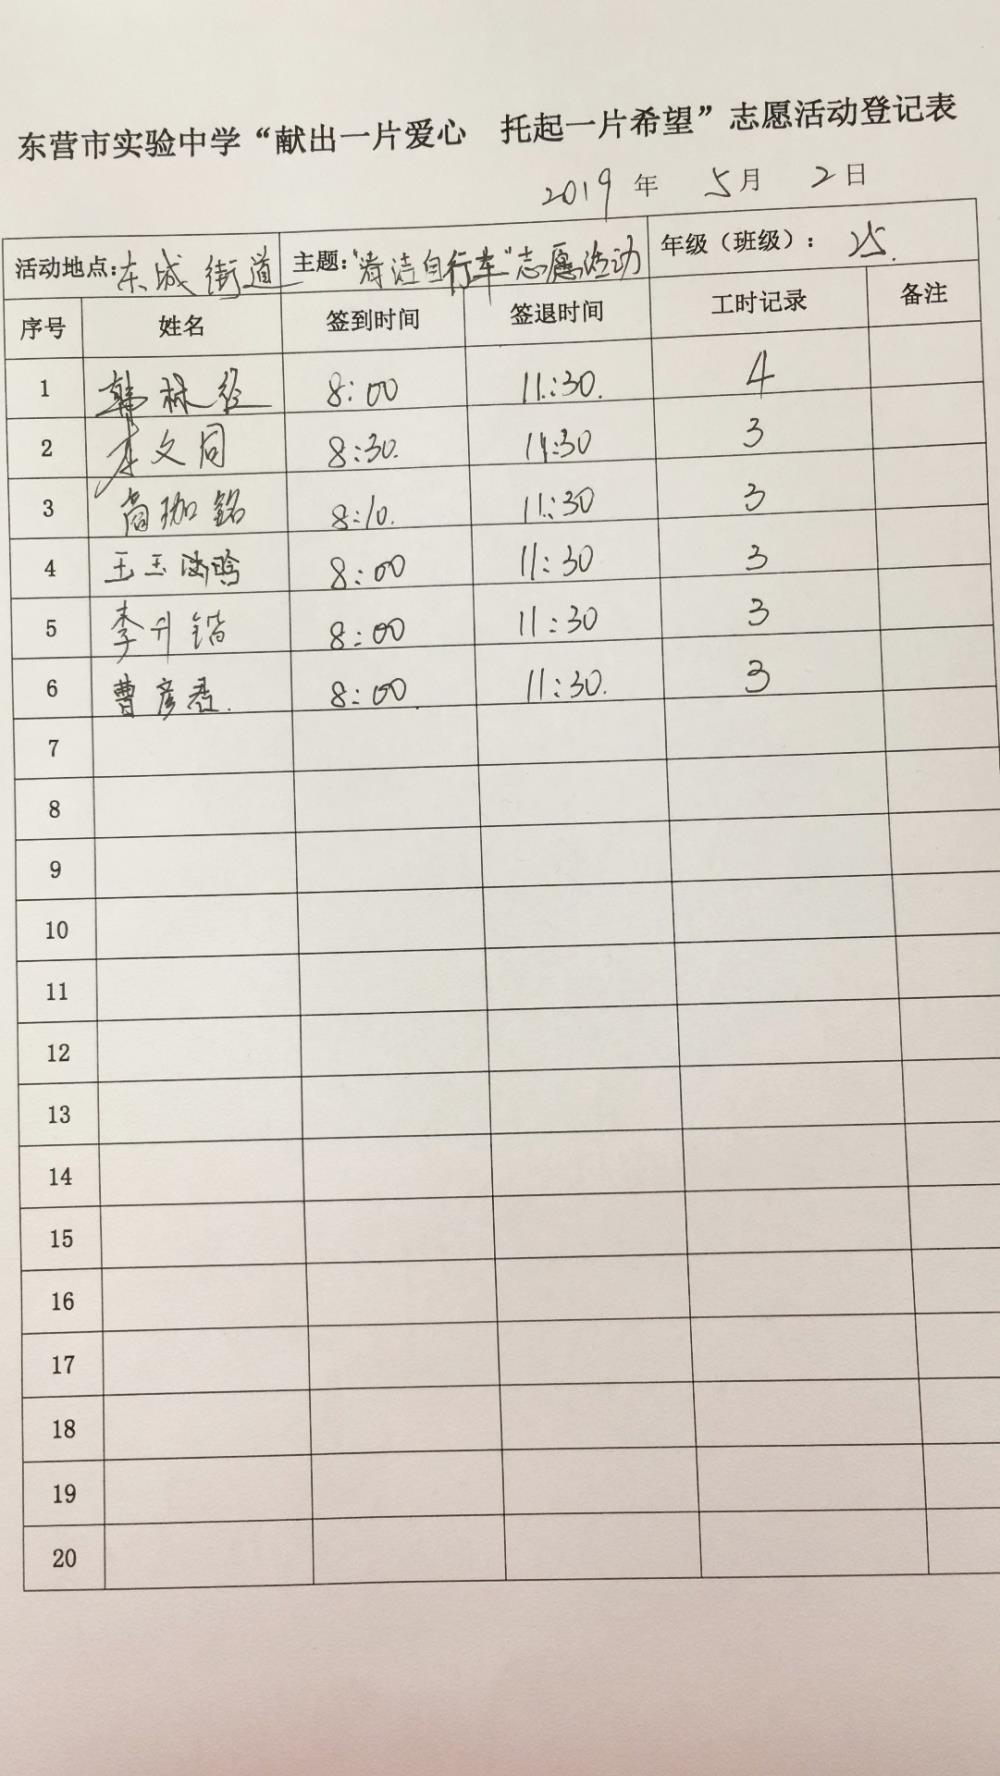 东营市实验中学“献出一片爱心 托起一片希望”志愿活动登记表
2019 年 5 月 2 日
活动地点：东城街道 主题：“清洁自行车”志愿活动 年级（班级）：25.
序号 姓名 签到时间 签退时间 工时记录 备注
1 韩林 8:00 11:30. 4
2 文同 8:30. 11:30 3
3 尚珈铭 8:10. 11:30 3
4 王玉 8:00 11:30 3
5 李升锴 8:00 11:30 3
6 曹彦君. 8:00. 11:30. 3
7
8
9
10
11
12
13
14
15
16
17
18
19
20